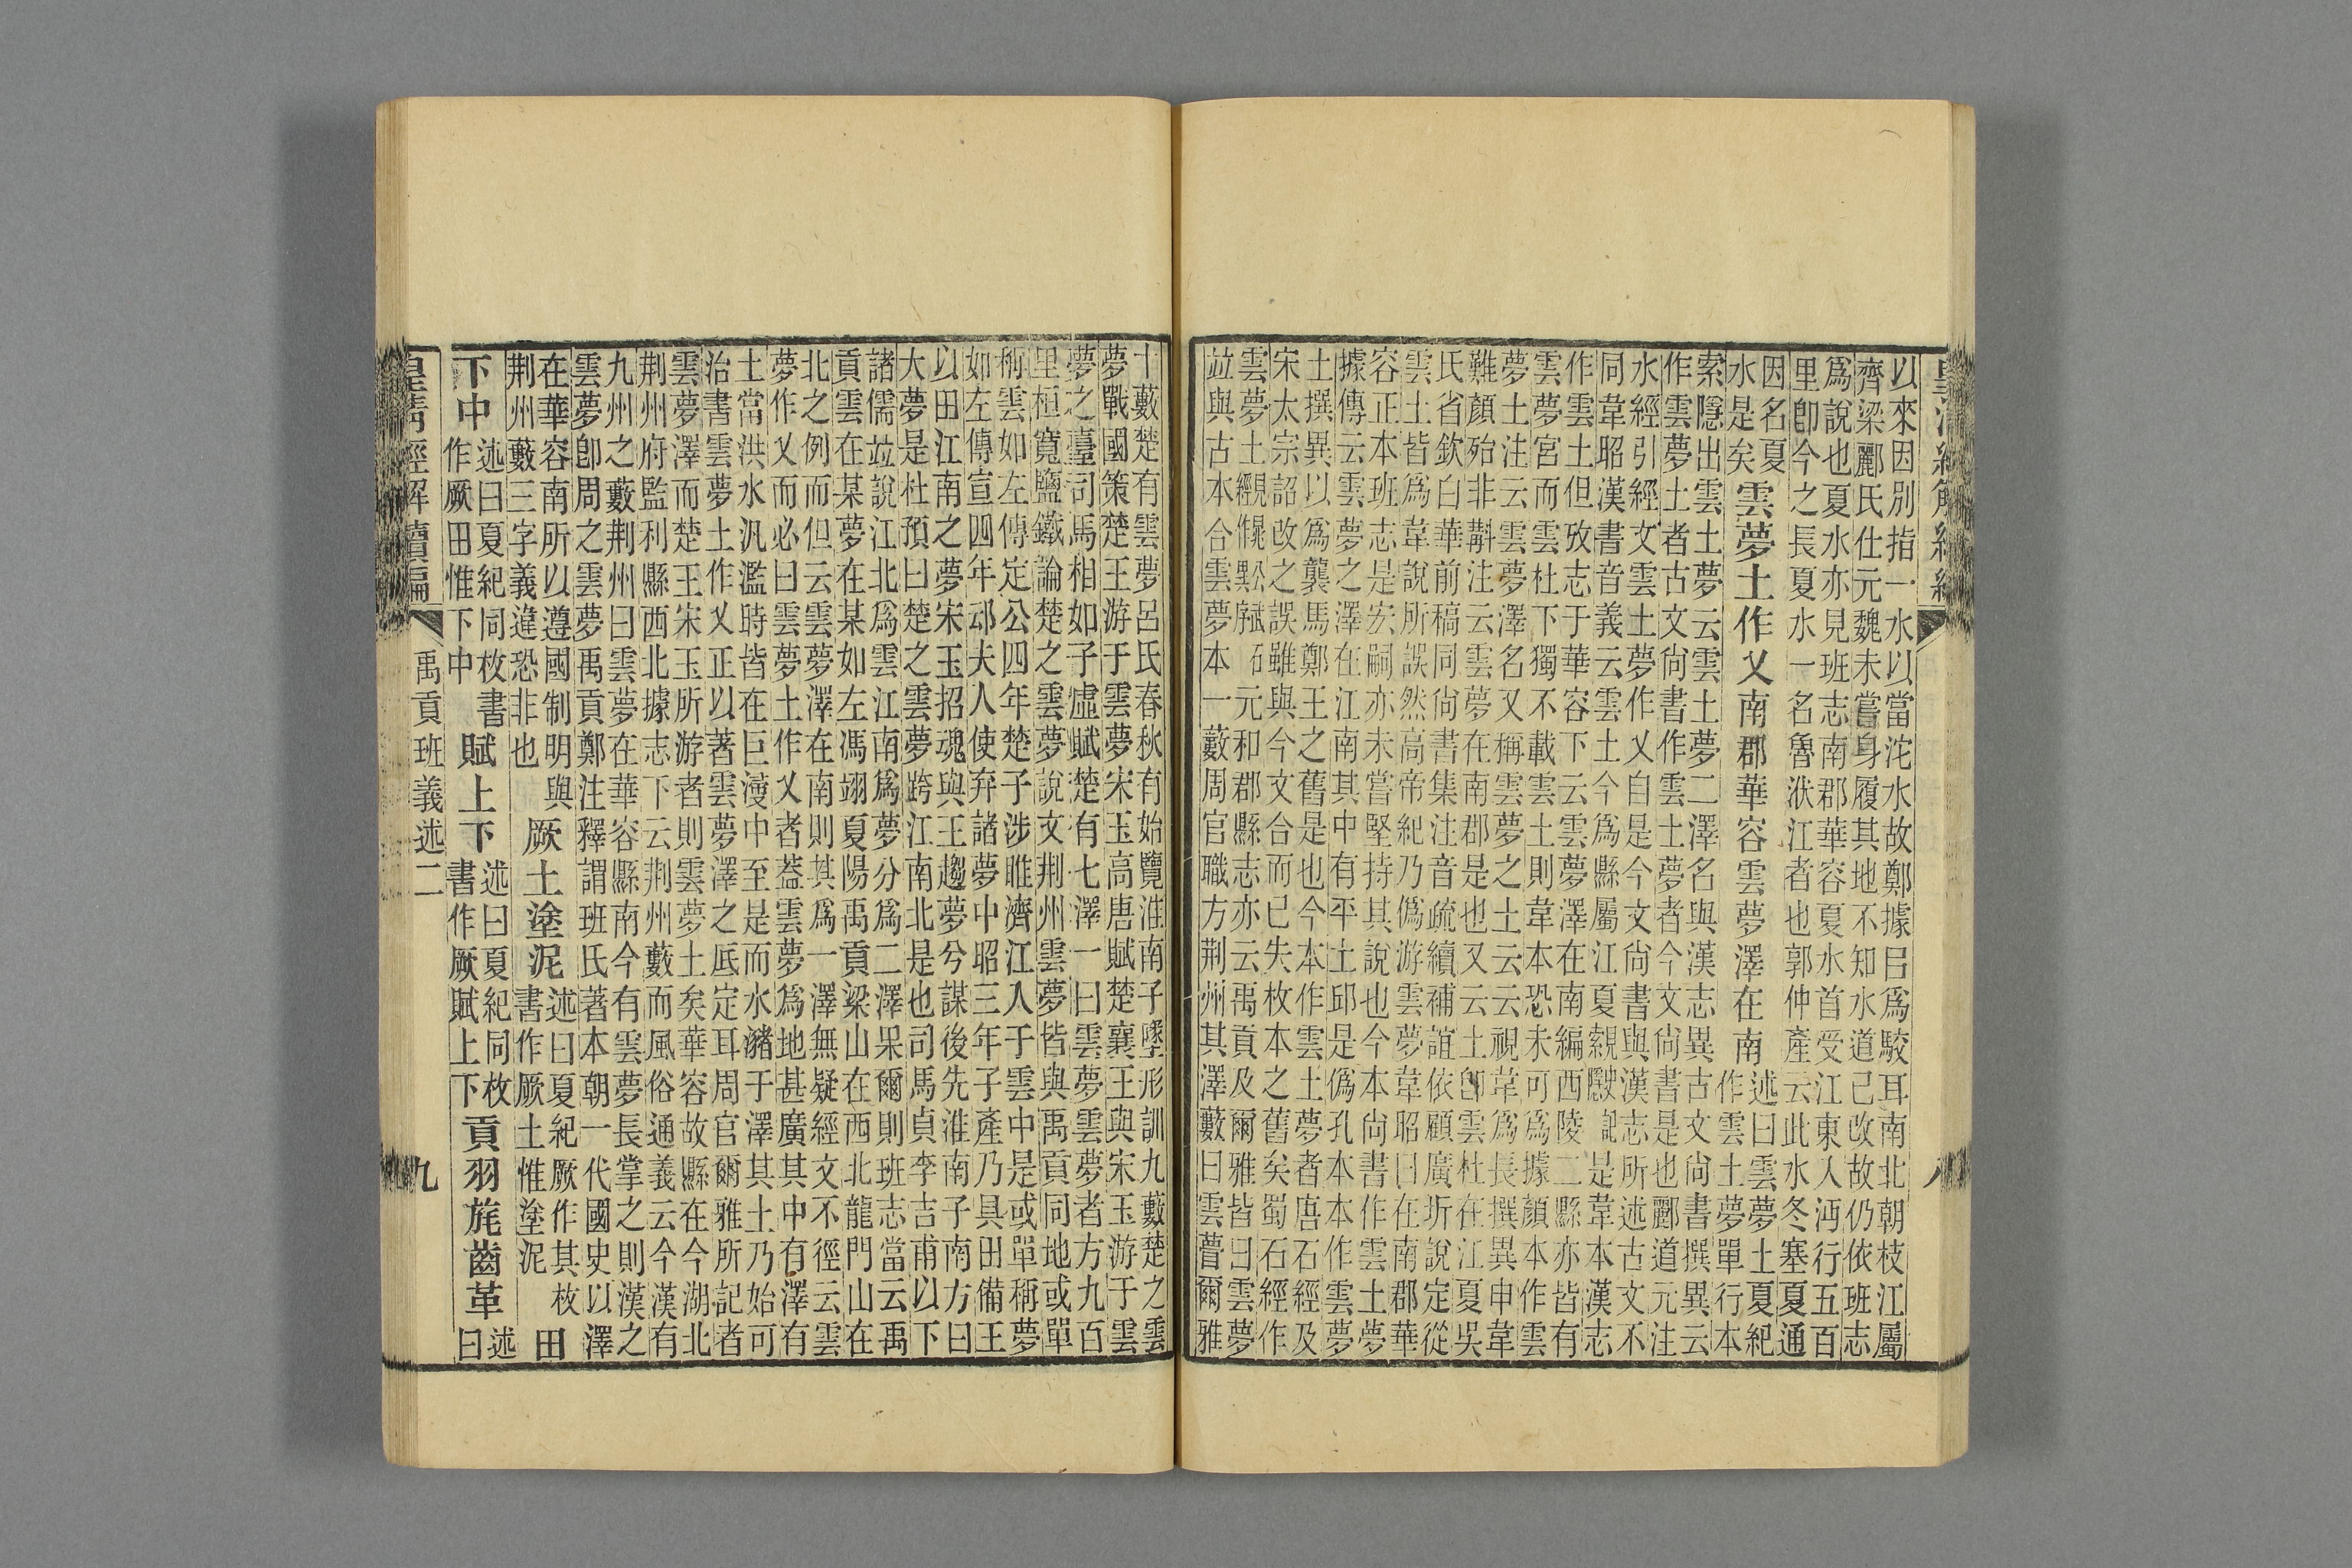 皇清經解續編
八
以來因別指一水以當沱水故鄭據㠯爲駮耳南北朝枝江屬
齊梁酈氏仕元魏未嘗身履其地不知水道已改故仍依班志
爲說也夏水亦見班志南郡華容夏水首受江東入沔行五百
里卽今之長夏水一名魯洑江者也郭仲產云此水冬塞夏通
因名夏水是矣雲夢土作乂南郡華容雲夢澤在南述曰雲夢土夏紀作雲土夢單行本
索隱出雲土夢云雲土夢二澤名與漢志異古文尙書撰異云
作雲夢土者古文尙書作雲土夢者今文尙書是也酈道元注
水經引經文雲土夢作乂自是今文尙書與漢志所述古文不
同韋昭漢書音義云雲土今爲縣屬江夏是韋本漢志
作雲土但攷志于華容下云雲夢澤在南編西陵二縣亦皆有
雲夢宮而雲杜下獨不載雲土則韋本恐未可爲據顏本作雲
夢土注云雲夢澤名又稱雲夢之土云云視韋爲長撰異申韋
難顏殆非斠注云雲夢在南郡是也又云土卽雲杜在江夏吳
氏省欽白華前稿同尙書集注音疏續補誼依顧廣圻說定從
雲土皆爲韋說所誤然高帝紀乃僞游雲夢韋昭曰在南郡華
容正本班志是宏嗣亦未嘗堅持其說也今本尙書作雲土夢
據傳云雲夢之澤在江南其中有平土邱是僞孔本本作雲夢
土撰異以爲龔馬鄭王之舊是也今本作雲土夢者唐石經及
宋太宗詔改之誤雖與今文合而已失枚本之舊矣蜀石經作
雲夢土元和郡縣志亦云禹貢及爾雅皆曰雲夢
竝與古本合雲夢本一藪周官職方荆州其澤藪曰雲瞢爾雅
十藪楚有雲夢呂氏春秋有始覽淮南子墬形訓九藪楚之雲
夢戰國策楚王游于雲夢宋玉高唐賦楚襄王與宋玉游于雲
夢之臺司馬相如子虛賦楚有七澤一曰雲夢雲夢者方九百
里桓寬鹽鐵論楚之雲夢說文荆州雲夢皆與禹貢同地或單
稱雲如左傳定公四年楚子涉睢濟江入于雲中是或單稱夢
如左傳宣四年䢵夫人使弃諸夢中昭三年子產乃具田備王
以田江南之夢宋玉招魂與王趨夢兮謀後先淮南子南方曰
大夢是杜預曰楚之雲夢跨江南北是也司馬貞李吉甫以下
諸儒竝說江北爲雲江南爲夢分爲二澤果爾則班志當云禹
貢雲在某夢在某如左馮翊夏陽禹貢梁山在西北龍門山在
北之例而但云雲夢澤在南則其爲一澤無疑經文不徑云雲
夢作乂而必曰雲夢土作乂者葢雲夢爲地甚廣其中有澤有
土當洪水汎濫時皆在巨浸中至是而水瀦于澤其土乃始可
治書雲夢土作乂正以著雲夢澤之底定耳周官爾雅所記者
雲夢澤而楚王宋玉所游者則雲夢土矣華容故縣在今湖北
荆州府監利縣西北據志下云荆州藪而風俗通義云今漢有
九州之藪荆州曰雲夢在華容縣南今有雲夢長掌之則漢之
雲夢卽周之雲夢禹貢鄭注釋謂班氏著本朝一代國史以澤
在華容南所以遵國制明與荆州藪三字義違恐非也厥土塗泥述曰夏紀厥作其枚書作厥土惟塗泥田
下中述曰夏紀同枚書作厥田惟下中賦上下述曰夏紀同枚書作厥賦上下貢羽旄齒革述曰
皇清經解續編
禹貢班義述二
九